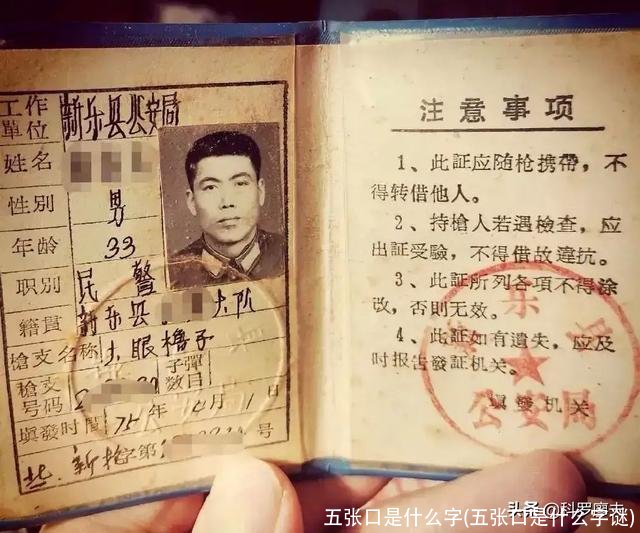 工作單位 新乐县公安局
姓名
性别 男
年龄 33
职别 民警
籍貫 新乐县 大队
槍支名称 大眼撸子 子彈数目
槍支号码
填發时間 75年 月1日
新枪字第 号
注意事项
1、此証应随枪携帶，不
得转借他人。
2、持槍人若遇檢查，应
出証受驗，不得借故違抗。
3、此証所列各項不得涂
改，否則无效。
4、此証如有遺失，应及
时报告發証机关。
填發机关
公安局
头条 @科罗廖夫
五张口是什么字(五张口是什么字谜)